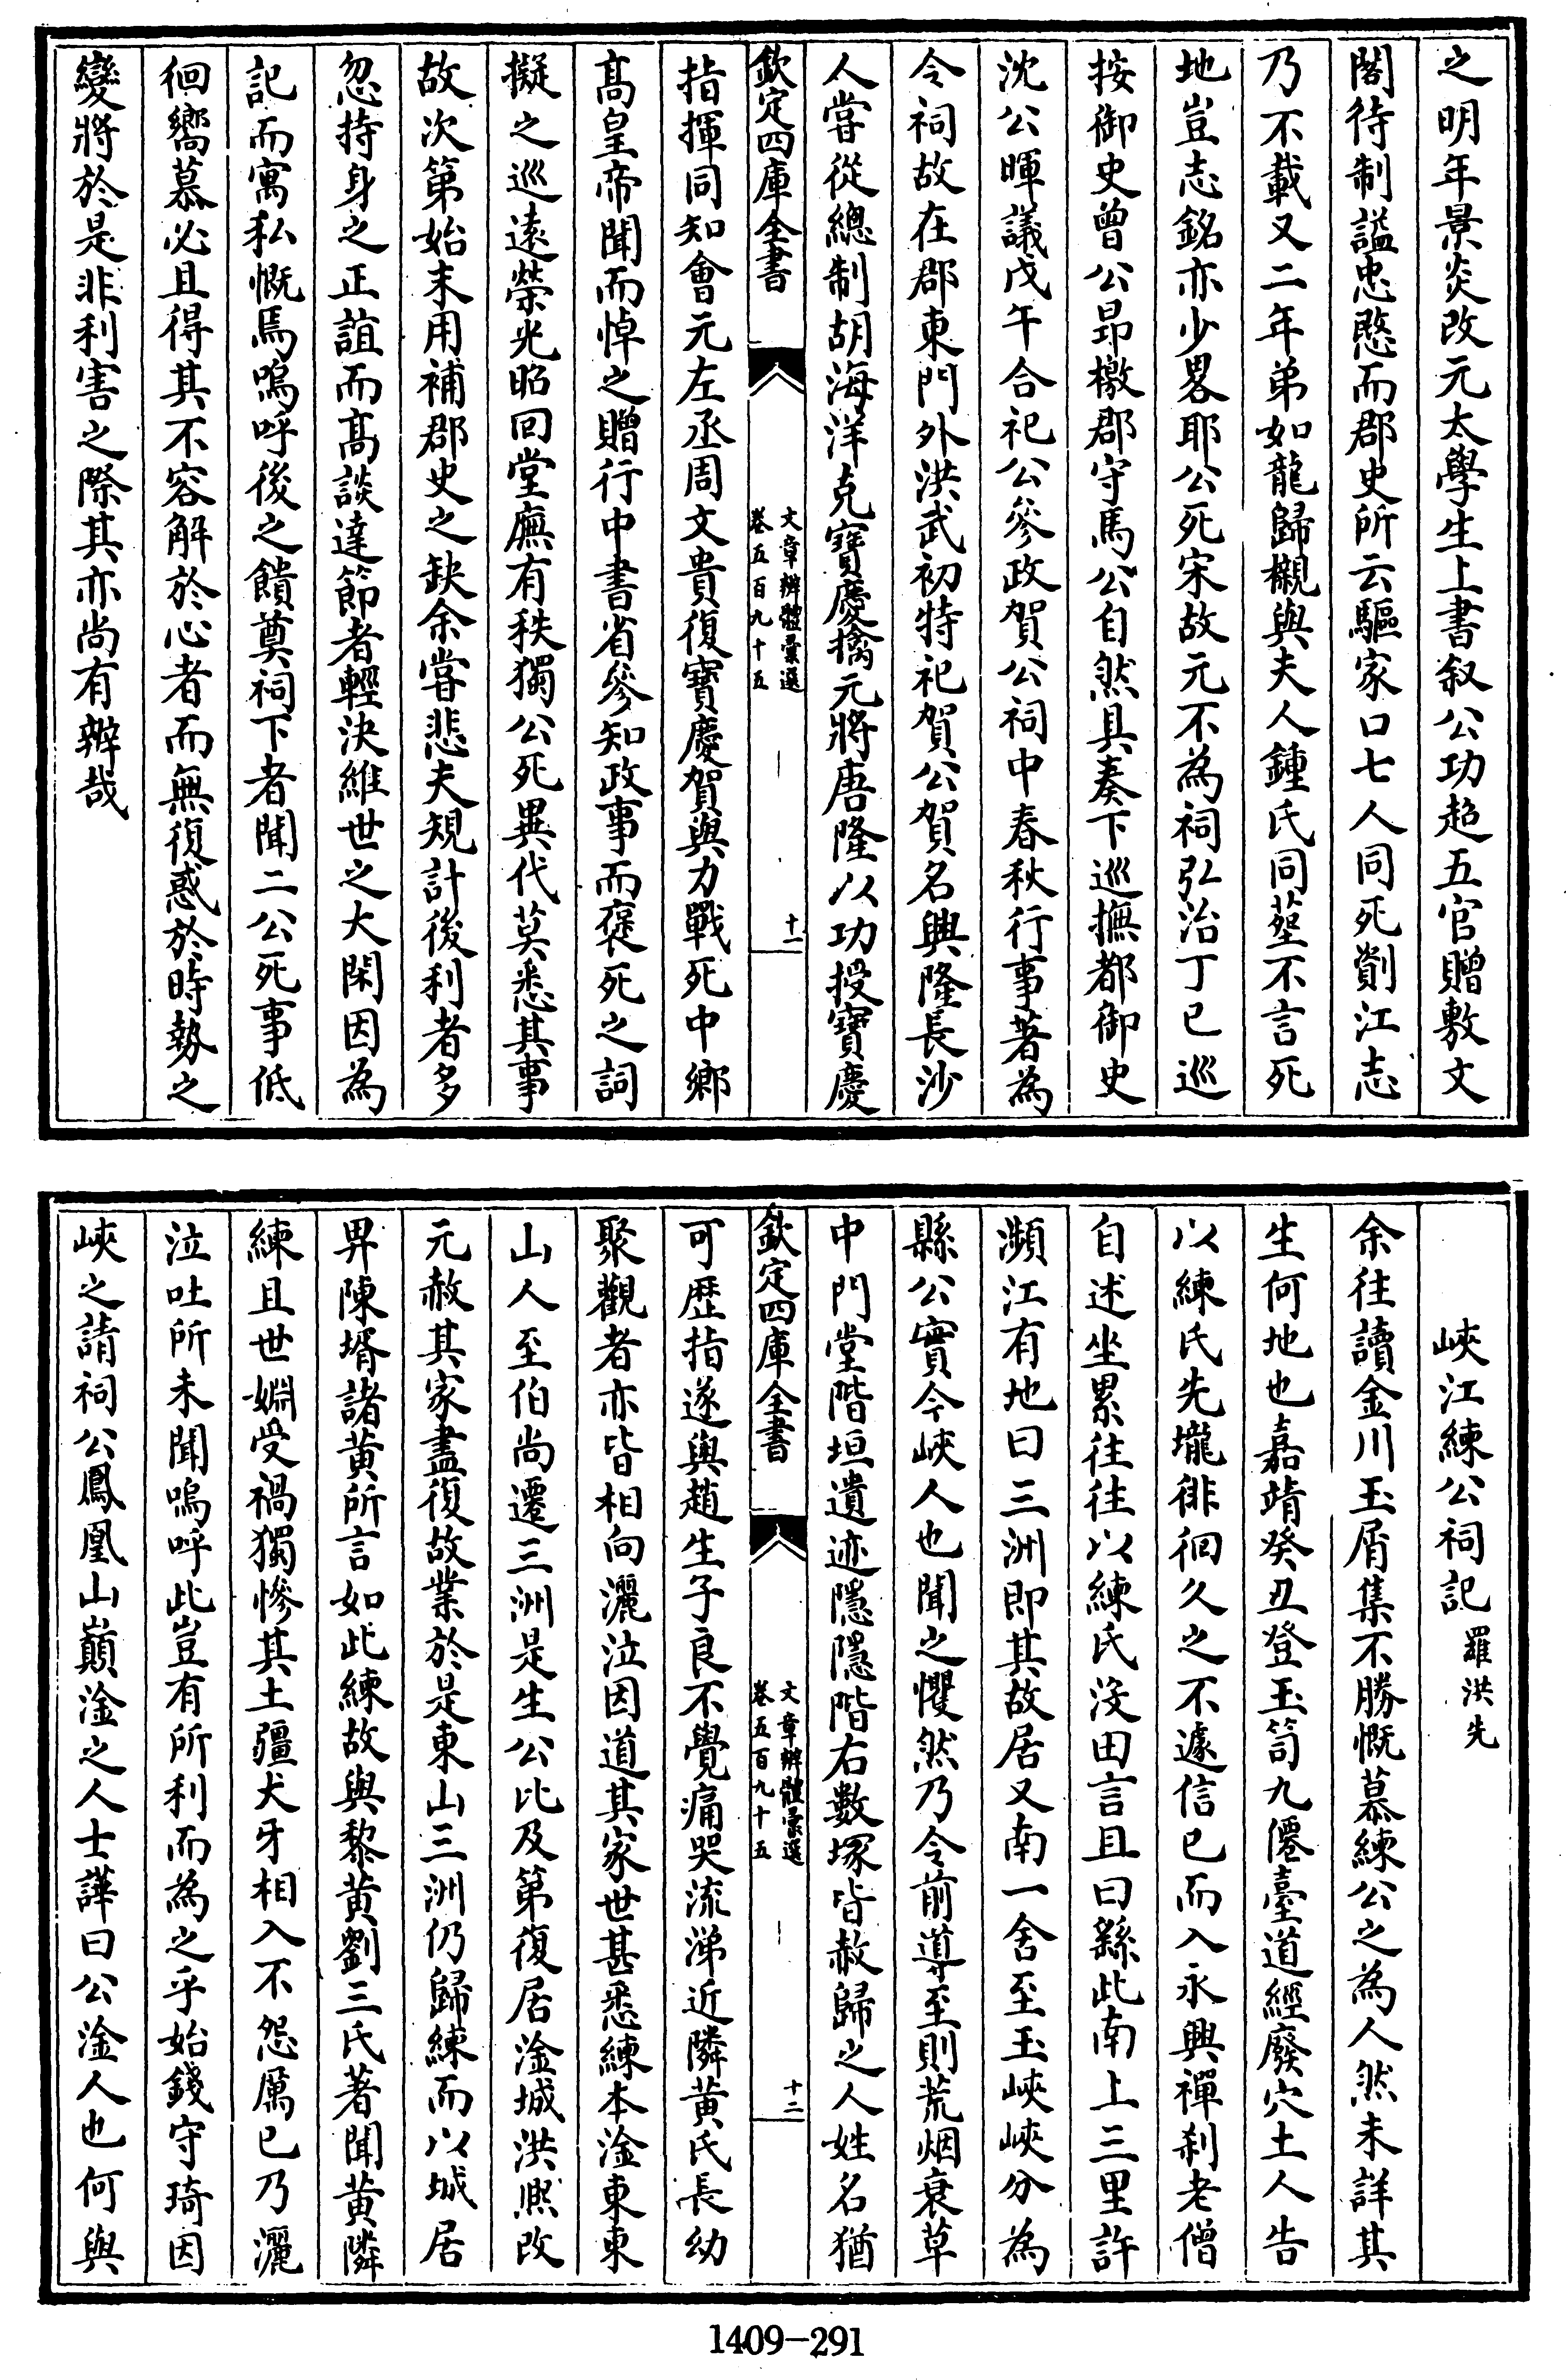 之明年景炎改元太學生上書叙公功超五官贈敷文
閣待制謚忠愍而郡史所云驅家口七人同死剬江志
乃不載又二年弟如龍歸櫬與夫人鍾氏同塟不言死
地豈志銘亦少畧耶公死宋故元不為祠弘治丁巳巡
按御史曾公昻檄郡守馬公自然具奏下巡撫都御史
沈公暉議戊午合祀公參政賀公祠中春秋行事著為
令祠故在郡東門外洪武初特祀賀公賀名興隆長沙
人嘗從總制胡海洋克寶慶擒元將唐隆以功授寶慶
欽定四庫全書
文章辨體彚選
卷五百九十五
十一
指揮同知會元左丞周文貴復寶慶賀與力戰死中鄉
髙皇帝聞而悼之贈行中書省參知政事而襃死之詞
擬之巡遠榮光昭回堂廡有秩獨公死異代莫悉其事
故次第始末用補郡史之缺余嘗悲夫規計後利者多
忽持身之正誼而髙談達節者輕決維世之大閑因為
記而寓私慨焉嗚呼後之饋奠祠下者聞二公死事低
徊嚮慕必且得其不容解於心者而無復惑於時勢之
變將於是非利害之際其亦尚有辨哉
峽江練公祠記 羅洪先
余往讀金川玉屑集不勝慨慕練公之為人然未詳其
生何地也嘉靖癸丑登玉笥九僊臺道經廢穴土人告
以練氏先壠徘徊久之不遽信已而入永興禪刹老僧
自述坐累往往以練氏沒田言且曰繇此南上三里許
瀕江有地曰三洲即其故居又南一舍至玉峽峽分為
縣公實今峽人也聞之懼然乃令前導至則荒烟衰草
中門堂階垣遺迹隱隱階右數塚皆赦歸之人姓名猶
欽定四庫全書
文章辨體彚選
卷五百九十五
十二
可歴指遂與趙生子良不覺痛哭流涕近隣黄氏長幼
聚觀者亦皆相向灑泣因道其家世甚悉練本淦東東
山人至伯尚遷三洲是生公比及第復居淦城洪熙改
元赦其家盡復故業於是東山三洲仍歸練而以城居
畀陳壻諸黄所言如此練故與黎黄劉三氏著聞黄隣
練且世婣受禍獨慘其土疆犬牙相入不怨厲已乃灑
泣吐所未聞嗚呼此豈有所利而為之乎始錢守琦因
峽之請祠公鳳凰山巔淦之人士譁曰公淦人也何與
1409-291